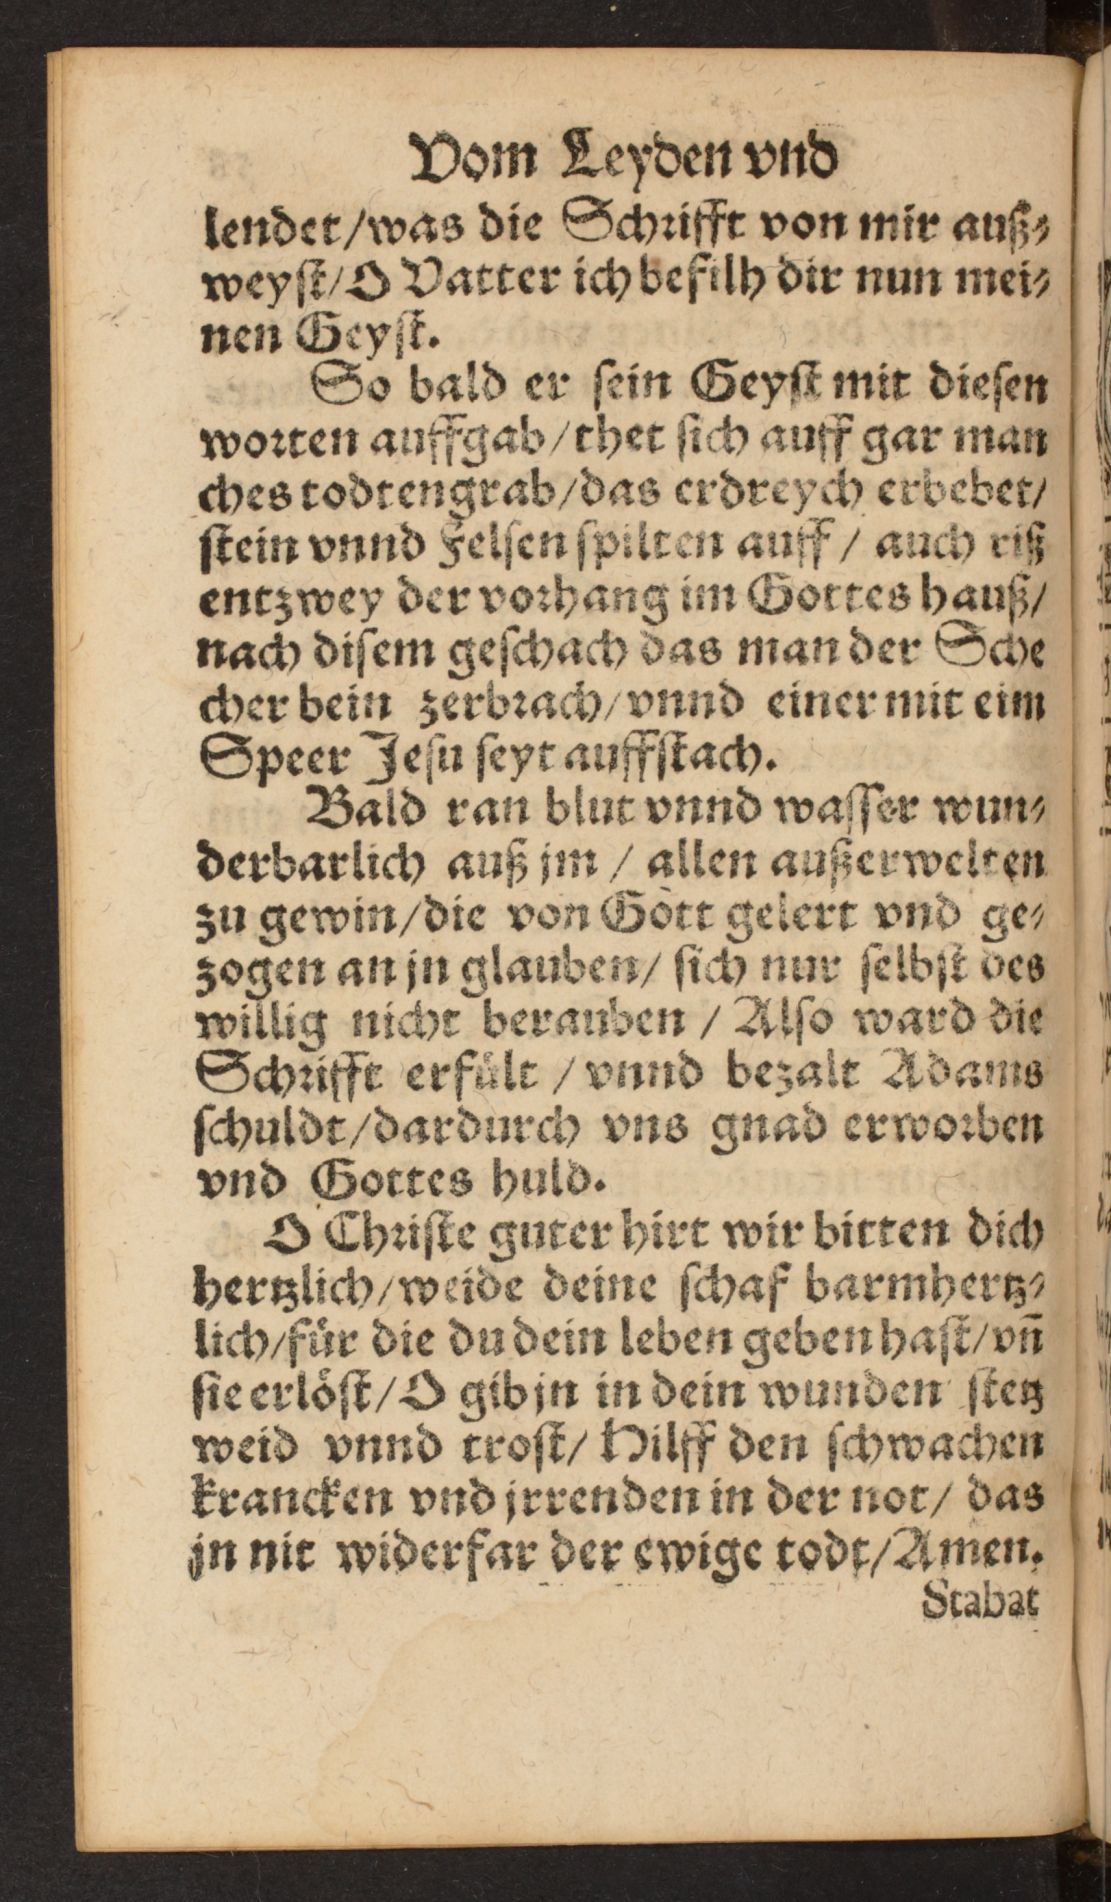 Vom Leyden vnd
lendet/was die Schrifft von mir auß⸗
weyst/O Vatter ich befilh dir nun mei⸗
nen Geyst.
So bald er sein Geyst mit diesen
worten auffgab/thet sich auff gar man
ches todtengrab/das erdreych erbebet/
stein vnnd Felsen spilten auff / auch riß
entzwey der vorhang im Gottes hauß/
nach disem geschach das man der Sche
cher bein zerbrach/vnnd einer mit eim
Speer Jesu seyt auffstach.
Bald ran blut vnnd wasser wun⸗
derbarlich auß jm / allen außerwelten
zu gewin/die von Gott gelert vnd ge⸗
zogen an jn glauben/ sich nur selbst des
willig nicht berauben / Also ward die
Schrifft erfült / vnnd bezalt Adams
schuldt/dardurch vns gnad erworben
vnd Gottes huld.
O Christe guter hirt wir bitten dich
hertzlich/weide deine schaf barmhertz⸗
lich/für die du dein leben geben hast/vn̄
sie erlöst/O gib jn in dein wunden stetz
weid vnnd trost/ Hilff den schwachen
krancken vnd jrrenden in der not/ das
jn nit widerfar der ewige todt/Amen.
Stabat